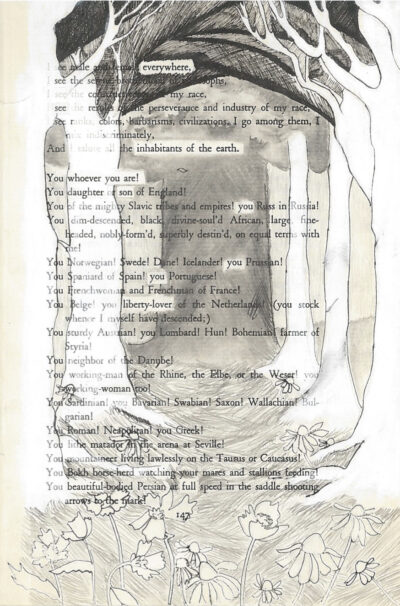 I see male and female everywhere,
I see the serene brotherhood of philosophs,
I see the constructiveness of my race,
I see the results of the perseverance and industry of my race,
I see ranks, colors, barbarisms, civilizations, I go among them, I
mix indiscriminately,
And I salute all the inhabitants of the earth.
You whoever you are!
You daughter or son of England!
You of the mighty Slavic tribes and empires! you Russ in Russia!
You dim-descended, black, divine-soul'd African, large, fine-
headed, nobly-form'd, superbly destin'd, on equal terms with
me!
You Norwegian! Swede! Dane! Icelander! you Prussian!
You Spaniard of Spain! you Portuguese!
You Frenchwoman and Frenchman of France!
You Belge! you liberty-lover of the Netherlands! (you stock
whence I myself have descended;)
You sturdy Austrian! you Lombard! Hun! Bohemian! farmer of
Styria!
You neighbor of the Danube!
You working-man of the Rhine, the Elbe, or the Weser! you
working-woman too!
You Sardinian! you Bavarian! Swabian! Saxon! Wallachian! Bul-
garian!
You Roman! Neapolitan! you Greek!
You lithe matador in the arena at Seville!
You mountaineer living lawlessly on the Taurus or Caucasus!
You Bokh horse-herd watching your mares and stallions feeding!
You beautiful-bodied Persian at full speed in the saddle shooting
arrows to the mark!
147